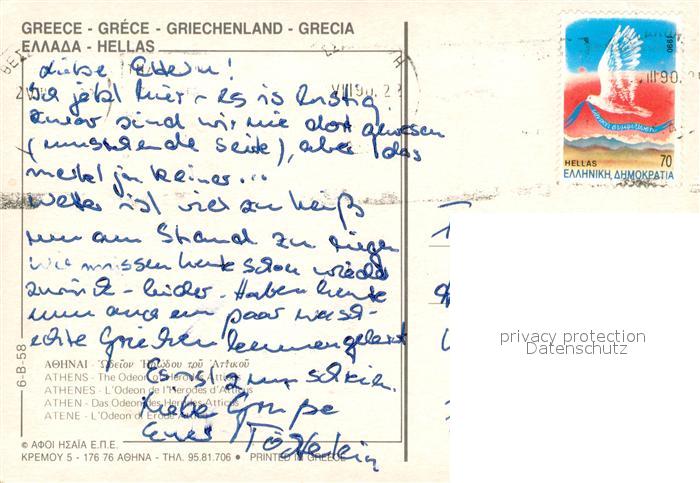 GREECE - GRÉCE - GRIECHENLAND - GRECIA
ΕΛΛΑΔΑ - HELLAS
Liebe Eltern!
jetzt hier - es is lustig
zwar sind wir nie dort gewesen
(umstehende Seite), aber das
merkt ja keiner...
Wetter ist viel zu heiß
um am Strand zu liegen
wir müssen heute schon wieder
zurück - leider. Haben heute
nun auch ein paar wasch-
echte Griechen kennengelernt
Es ist zum schrein.
Liebe Grüße
Euer
VIII 90. 22
III 90. 2
1990
HELLAS 70
ΕΛΛΗΝΙΚΗ ΔΗΜΟΚΡΑΤΙΑ
privacy protection
Datenschutz
6-B-58
ΑΘΗΝΑΙ - Ὠδεῖον Ἡρώδου τοῦ Ἀττικοῦ
ATHENS - The Odeon of Herodes Atticus
ATHENES - L'Odeon de l'Herodes d'Atticus
ATHEN - Das Odeon des Herodes Atticus
ATENE - L'Odeon di Erode Attico
© ΑΦΟΙ ΗΣΑΪΑ Ε.Π.Ε.
ΚΡΕΜΟΥ 5 - 176 76 ΑΘΗΝΑ - ΤΗΛ. 95.81.706 • PRINTED IN GREECE